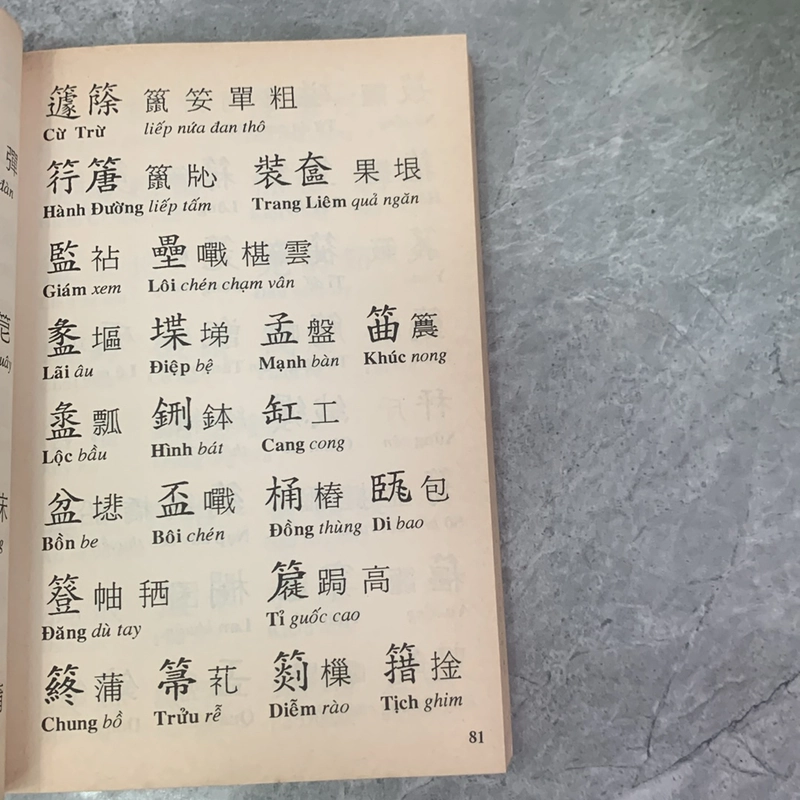 籧篨 籬 笅 單 粗
Cừ Trừ liếp nứa đan thô
筕篖 裝奩 果 垠
Hành Đường liếp tấm Trang Liêm quả ngăn
監 祜 罍 嚈 椹 雲
Giám xem Lôi chén chạm vân
蠡 塸 堞 埇 孟 盤 笛 籅
Lãi âu Điệp bệ Mạnh bàn Khúc nong
盝 瓢 鉶 鉢 缸 工
Lộc bầu Hình bát Cang cong
盆 盃 桶 樁 包
Bồn be Bôi chén Đồng thùng Di bao
簦 帕 高
Đăng dù tay Tỉ guốc cao
終 蒲 箒 樔 籍 捦
Chung bồ Trửu rễ Diễm rào Tịch ghim
81
彈
đàn
笆
quây